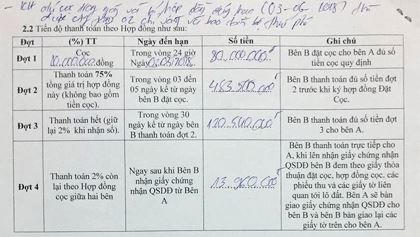 2.2 Tiến độ thanh toán theo Hợp đồng như sau:
Đợt (%) TT Ngày đến hạn Số tiền Ghi chú
Đợt 1
Cọc
20.000.000 đồng
Trong vòng 24 giờ
Ngày
20.000.000
Bên B đặt cọc cho bên A đủ số
tiền cọc quy định
Đợt 2
Thanh toán 75%
tổng giá trị hợp đồng
này (không bao gồm
tiền cọc).
Trong vòng 03 đến
05 ngày kể từ ngày
bên B đặt cọc.
483.500.000
Bên B thanh toán đủ số tiền đợt
2 trước khi ký hợp đồng Đặt
Cọc.
Đợt 3
Thanh toán hết (giữ
lại 2% khi nhận sổ).
Trong vòng 30
ngày kể từ ngày bên
B thanh toán đợt 2.
120.540.000
Bên B thanh toán đủ số tiền đợt
3 cho bên A.
Đợt 4
Thanh toán 2% còn
lại theo Hợp đồng
cọc giữa hai bên
Ngay sau khi Bên B
nhận giấy chứng
nhận QSDĐ từ Bên
A
13.960.000
Bên B thanh toán trực tiếp cho
A, khi lên nhận giấy chứng nhận
QSDĐ bên B đem theo giấy thỏa
thuận đặt cọc, hợp đồng cọc. các
phiếu thu và các giấy tờ liên
quan tới lô đất. Bên A sẽ bàn
giao giấy chứng nhận QSDĐ cho
bên B và bên B bàn giao lại các
giấy tờ trên cho bên A.